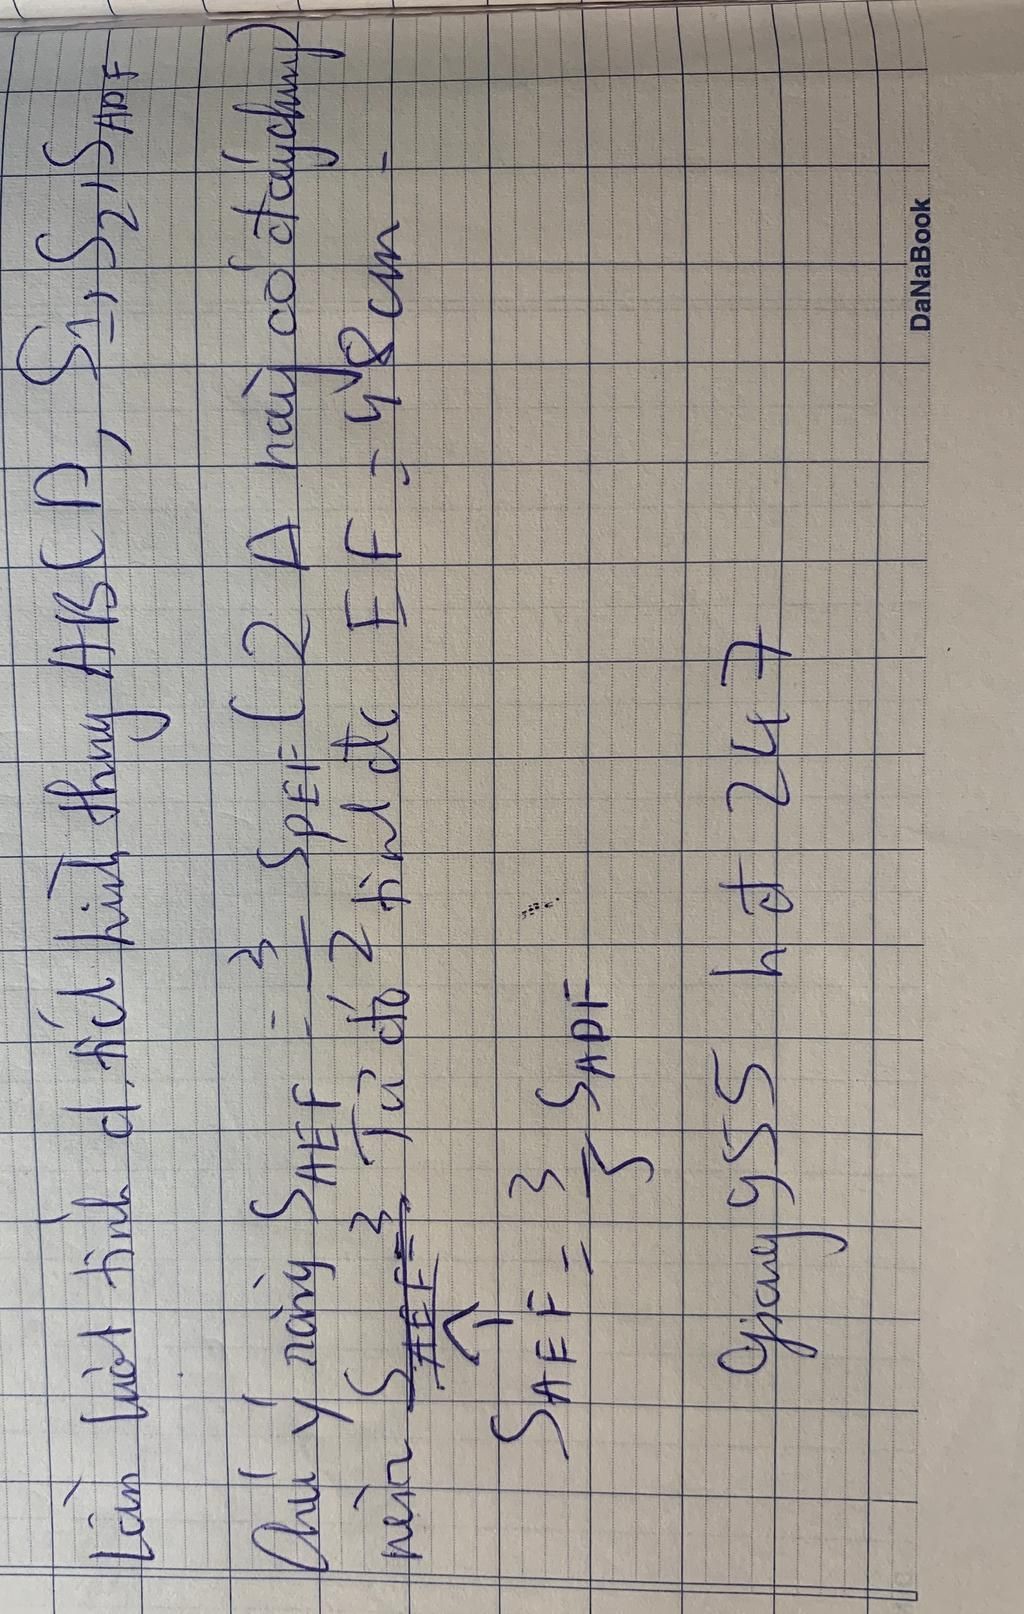 Lần lượt tính d.tích hình thang ABCD, S1, S2, SADF
Chú ý rằng SAEF = 3/2 SDEF (2 Δ này có đáy chung)
nên Từ đó tính đc EF = 48cm.
SAEF = 3/5 SADF
955 hđ 247
DaNaBook